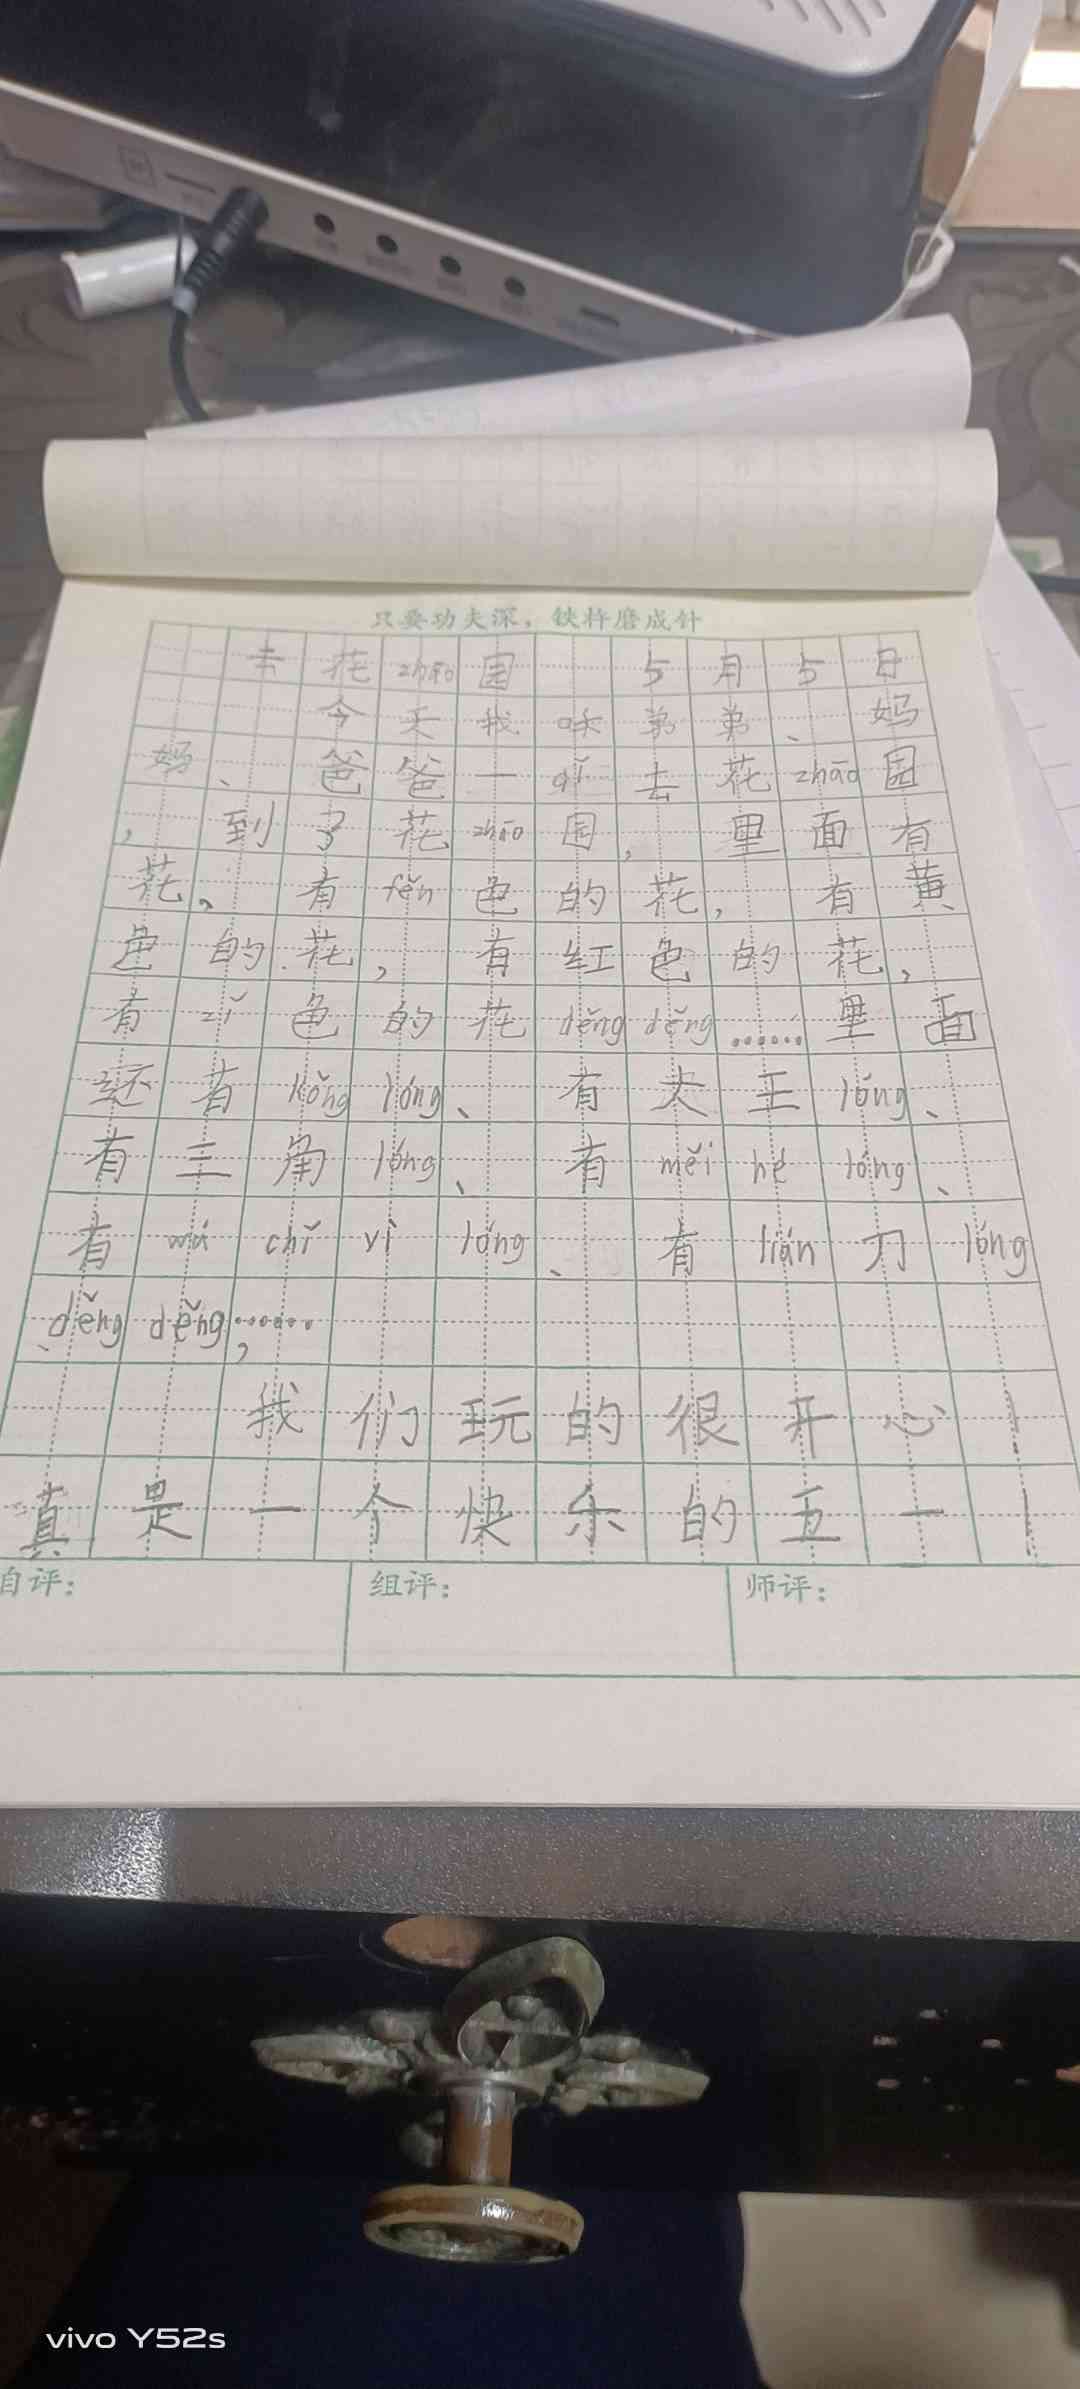 只要功夫深，铁杵磨成针
去花zhāo园 5月5日
今天我和弟弟、妈
妈、爸爸一qǐ去花zhāo园
，到了花zhāo园，里面有
花，有fěn色的花，有黄
色的花，有红色的花，
有zǐ色的花děngděng……里面
还有kǒnglóng、有大王lóng、
有三角lóng、有měihélóng、
有wúchǐyìlóng、有lián刀lóng
、děngděng，……
我们玩的很开心！
真是一个快乐的五一！
自评： 组评： 师评：
vivo Y52s